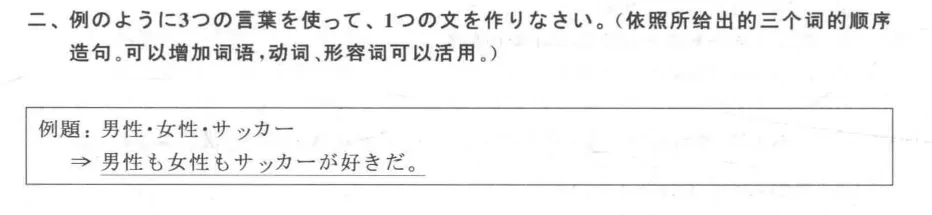 二、例のように3つの言葉を使って、1つの文を作りなさい。(依照所给出的三个词的顺序
造句。可以增加词语,动词、形容词可以活用。)
例題：男性・女性・サッカー
⇒ 男性も女性もサッカーが好きだ。